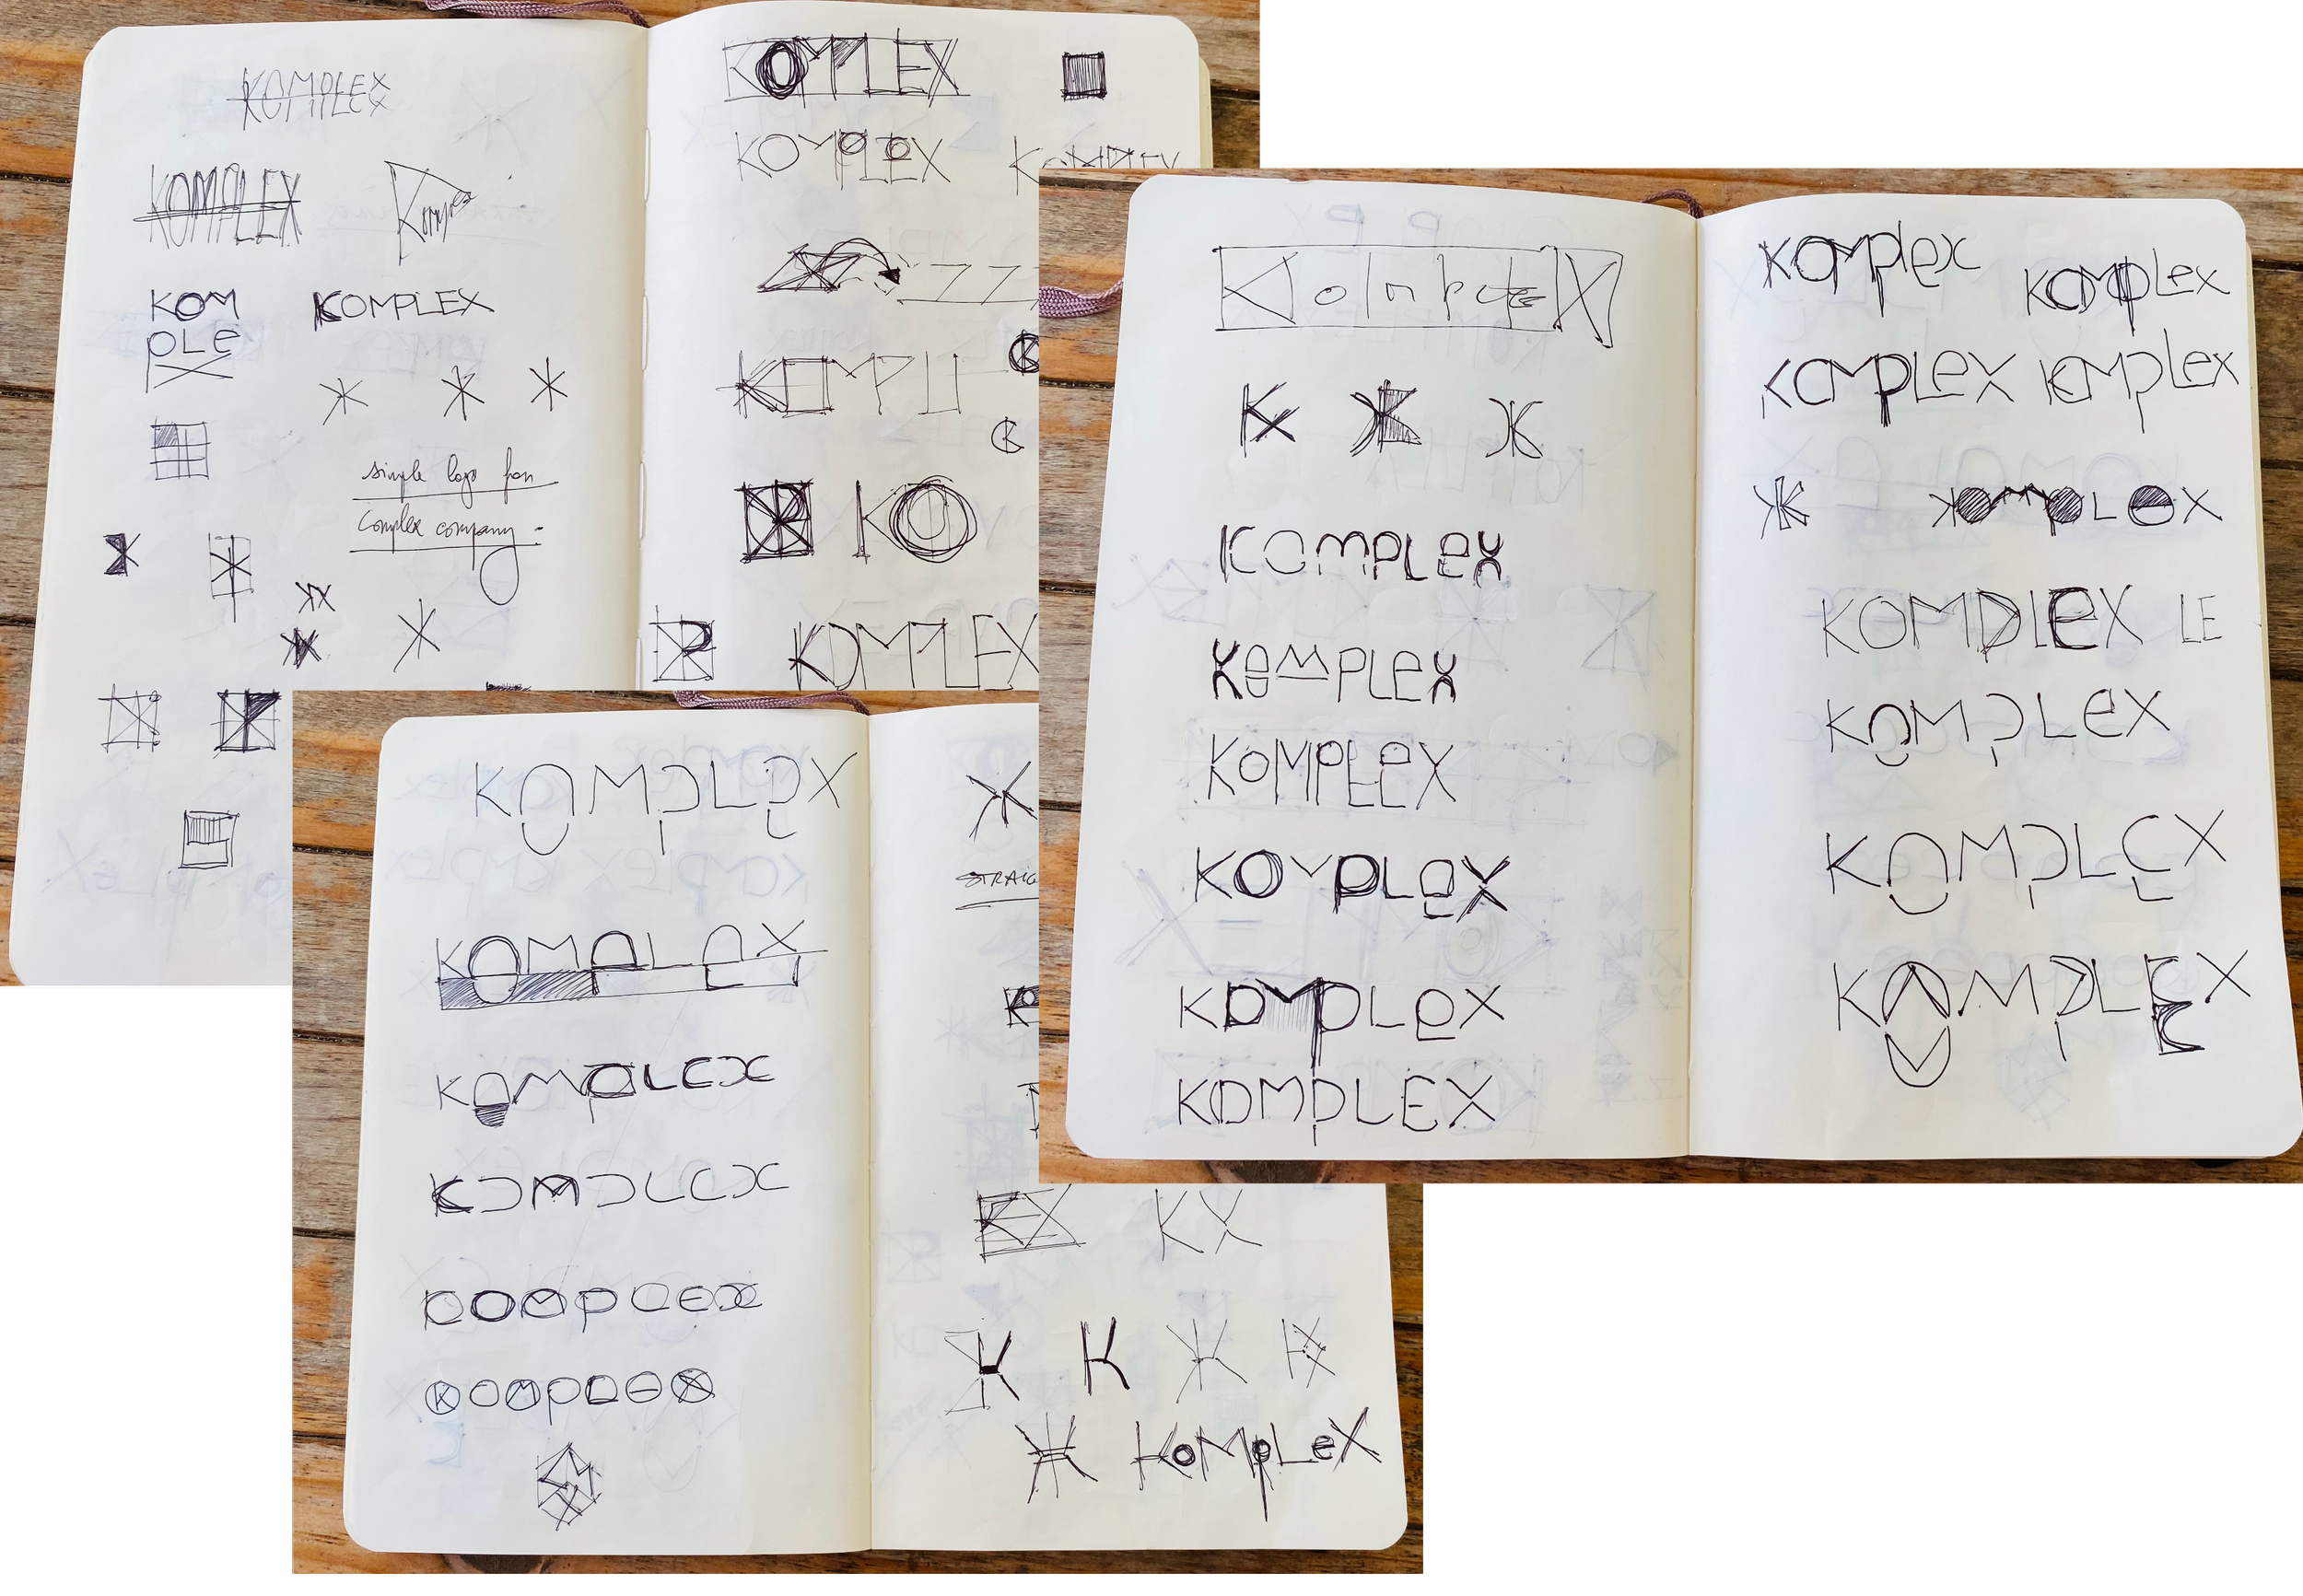 KOMPLEX
KOMPLEX
Komplex
KOM
PLe
X
KOMPLEX
simple logo for
complex company:
KOMPLEX
KOMPLEX
KOMPL
KO
KOMPLEX
Komplex
K
KOMPLEX
KOMPLEX
KOMPLEX
KOMPLEX
KOMPLEX
KOMPLEX
Komplex
KOMPLex
KOMPLex
KOMPLex
KOMPLEX
KOMPLEX LE
KOMPLeX
KOMPLEX
KOMPLEX
KOMPLEX
KOMPLEX
KOMPLEX
KOMPLEX
KOMPLEX
KOMPLEX
STRAIG
KX
KX
K K
KoMpLeX